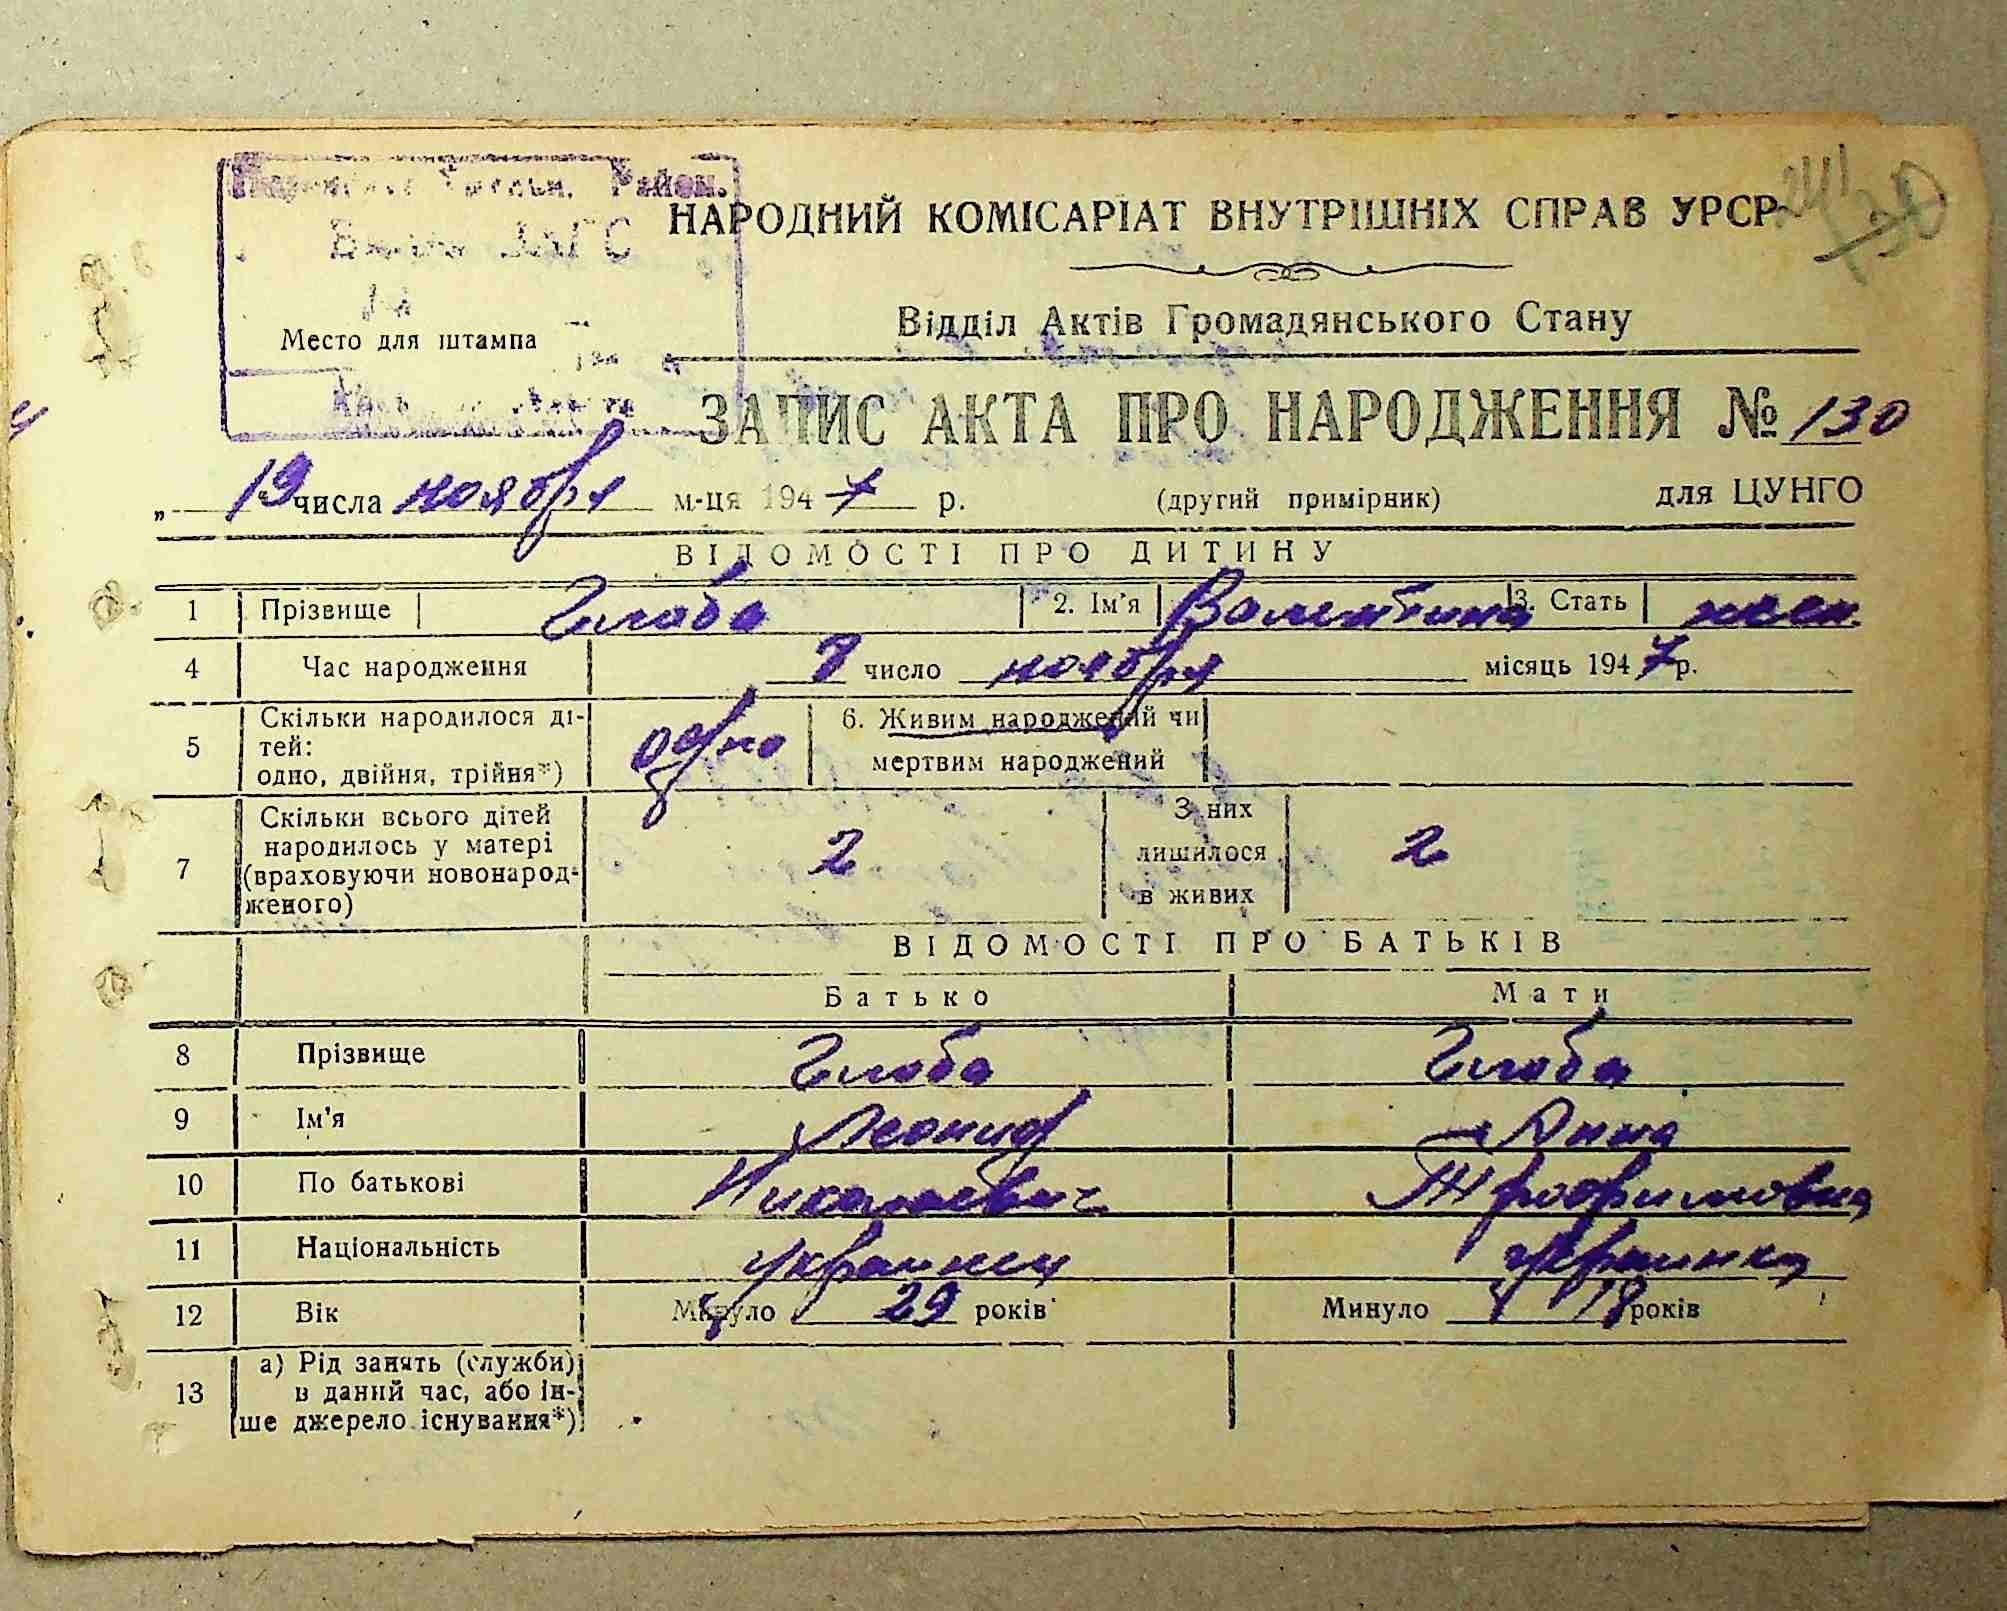 Район.
ЗАГС
НАРОДНИЙ КОМІСАРІАТ ВНУТРІШНІХ СПРАВ УРСР
130
Відділ Актів Громадянського Стану
Место для штампа
ЗАПИС АКТА ПРО НАРОДЖЕННЯ № 130
„ 19 числа ноября м-ця 1947 р. (другий примірник) для ЦУНГО
ВІДОМОСТІ ПРО ДИТИНУ
1 Прізвище Глоба 2. Ім'я Валентина 3. Стать жен.
4 Час народження 8 число ноября місяць 1947 р.
5 Скільки народилося ді-
тей:
одно, двійня, трійня*) одно 6. Живим народжений чи
мертвим народжений
7 Скільки всього дітей
народилось у матері
(враховуючи новонарод-
женого) 2 З них
лишилося
в живих 2
ВІДОМОСТІ ПРО БАТЬКІВ
Батько Мати
8 Прізвище Глоба Глоба
9 Ім'я Леонид Анна
10 По батькові Николаевич Трофимовна
11 Національність украинец украинка
12 Вік Минуло 29 років Минуло 18 років
13 а) Рід занять (служби)
в даний час, або ін-
ше джерело існування*)